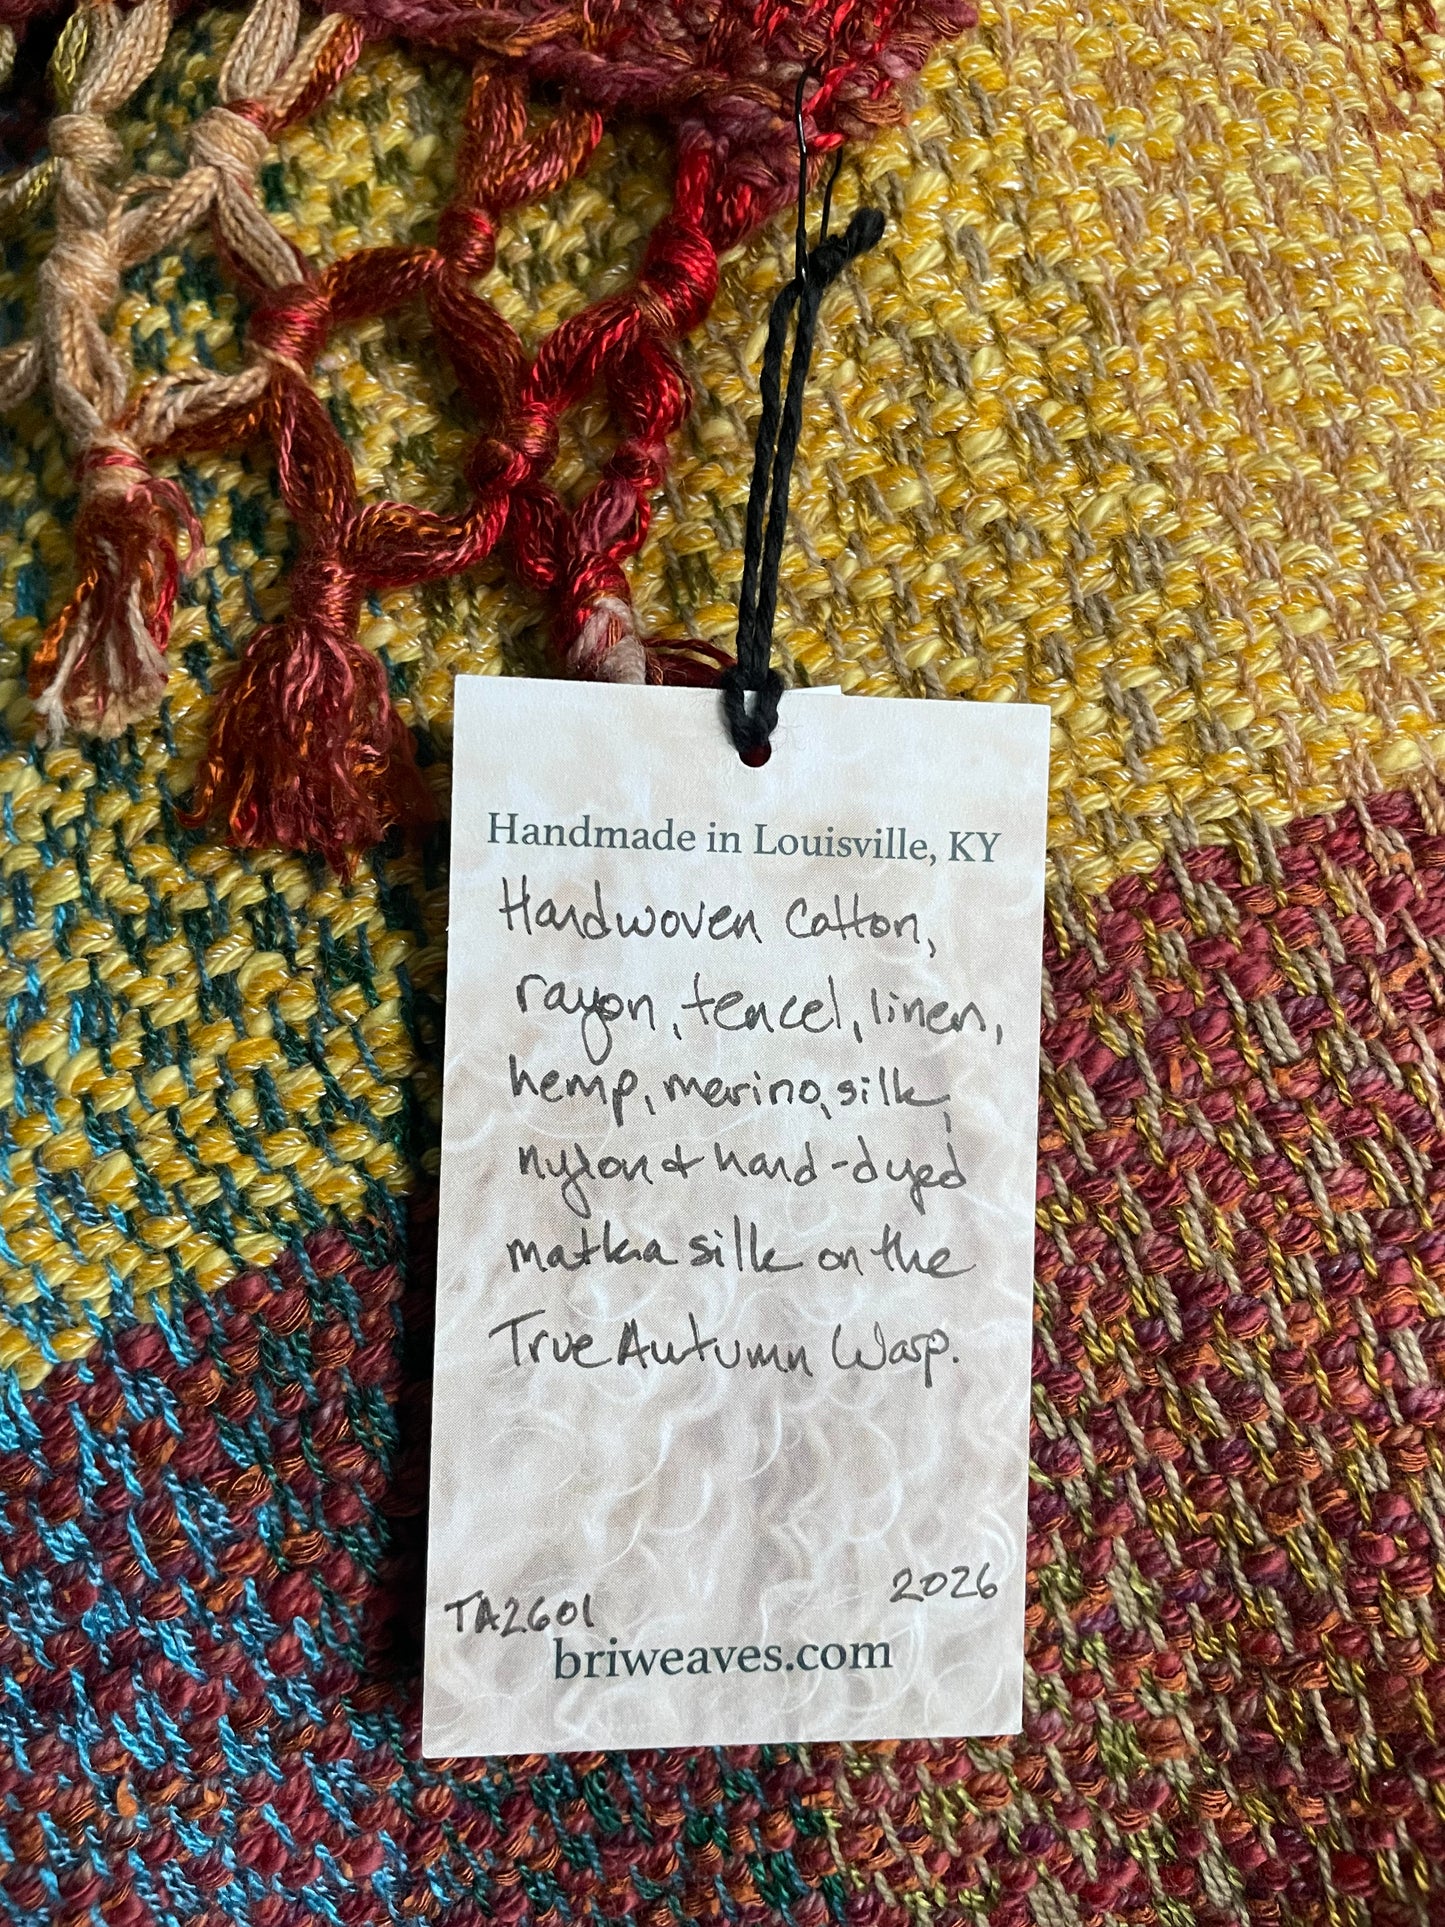 Handmade in Louisville, KY
Handwoven Cotton,
rayon, tencel, linen,
hemp, merino, silk,
nylon & hand-dyed
matka silk on the
True Autumn Warp.
TA2601
2026
briweaves.com